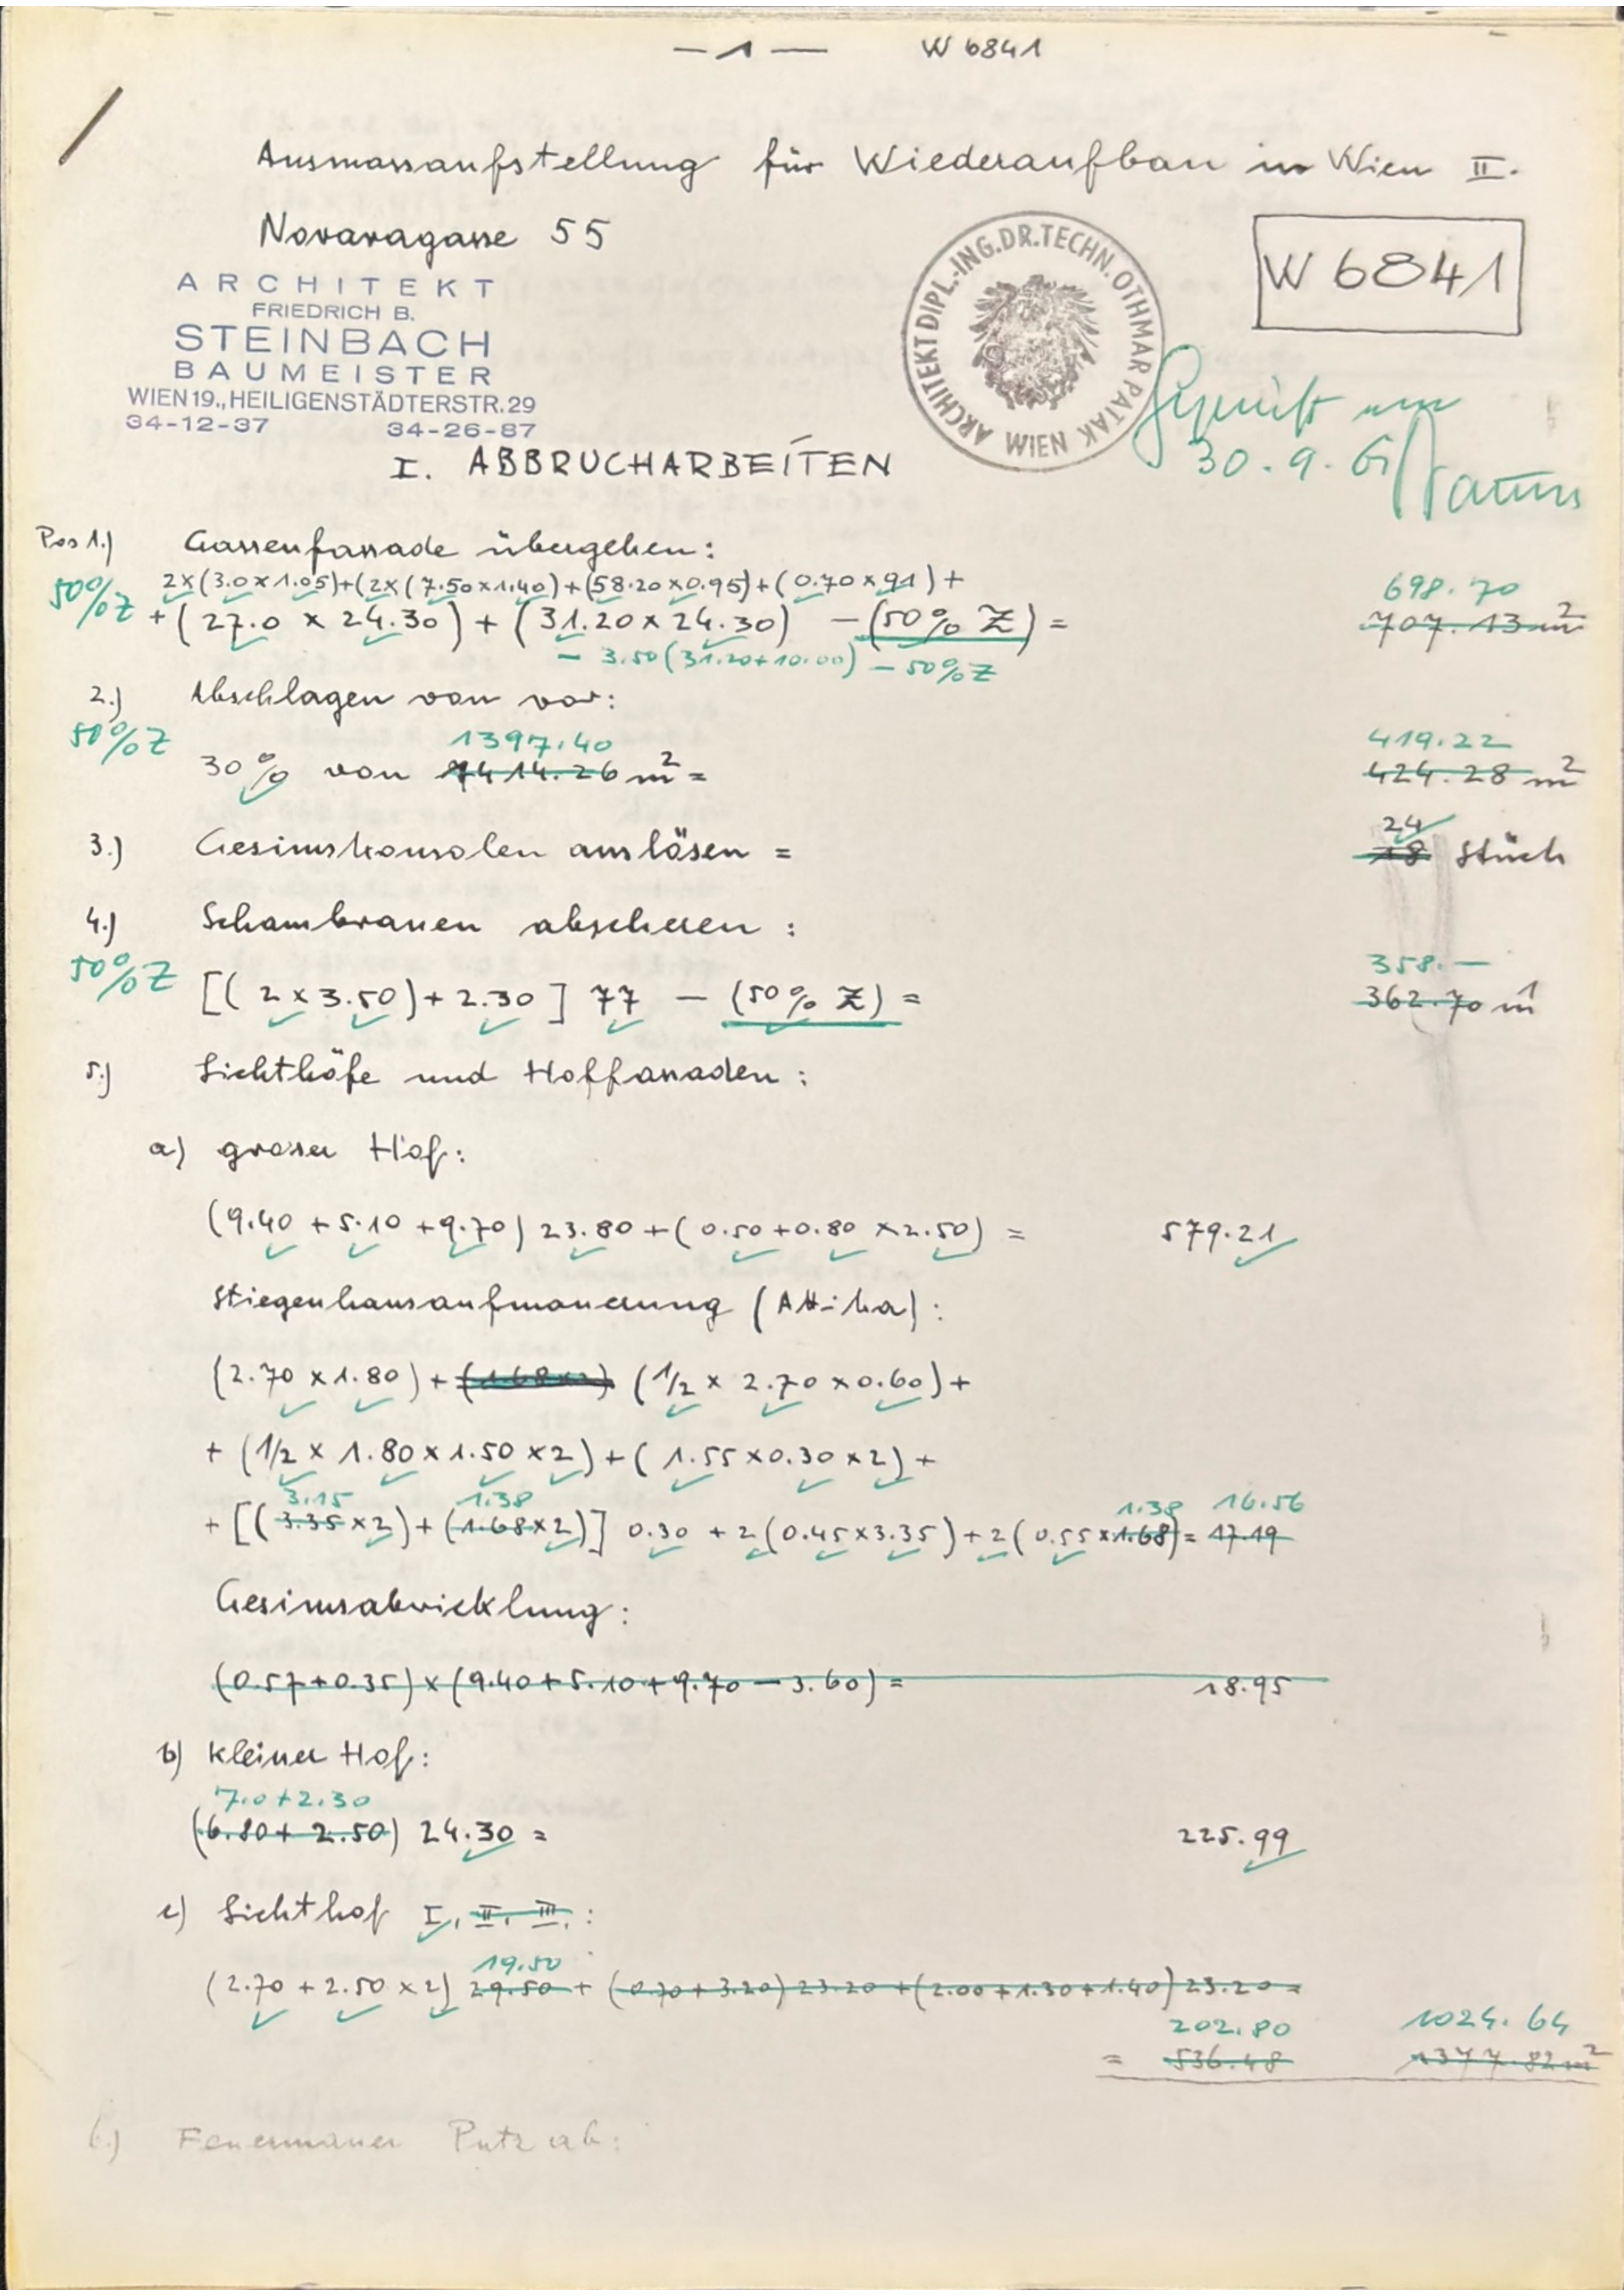 — 1 — W 6841
Ausmassaufstellung für Wiederaufbau in Wien II.
Novaragasse 55
W 6841
ARCHITEKT
FRIEDRICH B.
STEINBACH
BAUMEISTER
WIEN 19., HEILIGENSTÄDTERSTR. 29
34-12-37 34-26-87
ARCHITEKT DIPL.-ING.DR.TECHN. OTHMAR PATAK WIEN
Geprüft am
30.9.61
I. ABBRUCHARBEITEN
Pos 1.) Gassenfassade übergehen:
50% Z 2x(3.0x1.05)+(2x(7.50x1.40)+(58.20x0.95)+(0.70x91)+ 698.70
+(27.0 x 24.30)+(31.20x24.30) -(50% Z)= 707.13 m²
- 3.50(31.20+10.00) - 50% Z
2.) Abschlagen von vor:
50% Z 1397.40 419.22
30% von 1414.26 m² = 424.28 m²
3.) Gesimskonsolen auslösen = 24 18 Stück
4.) Schambranen abscheren:
50% Z 358.—
[(2x3.50)+2.30] 77 - (50% Z) = 362.70 m¹
5.) Lichthöfe und Hoffassaden:
a) grosser Hof:
(9.40+5.10+9.70) 23.80+(0.50+0.80 x2.50) = 579.21
Stiegenhausaufmauerung (Attika):
(2.70 x1.80)+(1.68x2) (1/2 x 2.70 x0.60)+
+ (1/2 x 1.80x1.50 x2)+(1.55x0.30x2)+
3.15 1.38 1.38 16.56
+ [(3.35x2)+(1.68x2)] 0.30 + 2(0.45x3.35)+2(0.55x1.68)= 17.19
Gesimsabwicklung:
(0.57+0.35)x(9.40+5.10+9.70-3.60)= 18.95
b) kleiner Hof:
7.0+2.30
(6.80+2.50) 24.30 = 225.99
c) Lichthof I, II, III,:
19.50
(2.70+2.50x2) 29.50+(0.70+3.20)23.20+(2.00+1.30+1.40)23.20=
202.80 1024.64
= 536.48 1377.82 m²
6.) Feuermauer Putz ab: